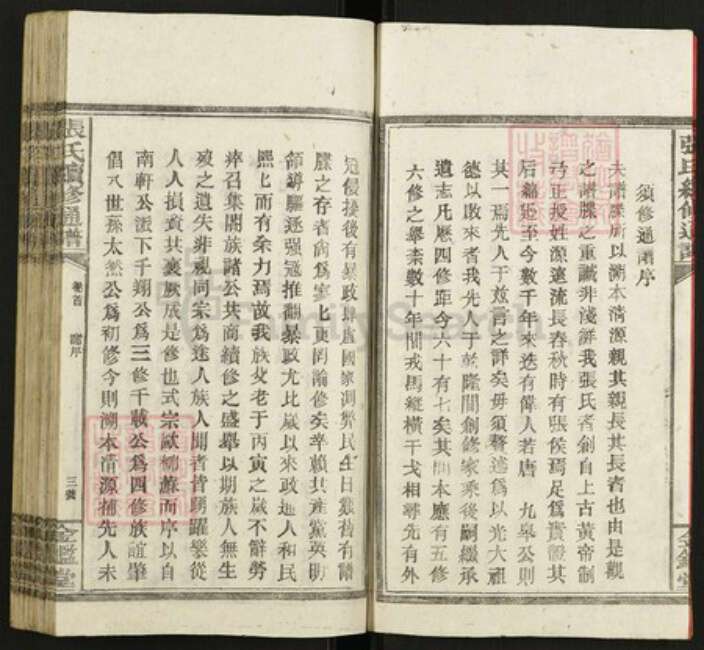 張氏續修通譜
須修通譜序
夫譜牒所以溯本清源親其親長其長者也由是觀
之譜牒之重誠非淺鮮我張氏者創自上古黃帝制
弓正授姓源遠流長春秋時有張侯焉足為貴設其
后縮延至今數千年來迭有偉人若唐 九皋公則
其一焉先人于玆言之詳矣毋須贅述為以光大祖
德以啟來者我先人于乾隆間創修家乘後嗣繼承
遺志凡歷四修距今六十有七矣其間本應有五修
六修之舉柰數十年間戎馬縱橫干戈相尋先有外
寇侵擾後有暴政肆虐國家凋弊民生日艱舊有譜
牒之存者尚為寥匕更罔論修矣幸賴共產黨英明
領導驅逐强寇推翻暴政尤比嵗以來政通人和民
熙匕而有余力焉故我族父老于丙寅之嵗不辭勞
瘁召集闔族諸公共商續修之盛舉以期族人無生
歿之遺失非視同宗為途人族人聞者皆踴躍樂從
人人損資共襄厥成是修也式宗歐柳蘇而序以自
南軒公派下千翔公為三修千載公為四修族誼肇
倡八世孫太然公為初修今則溯本清源補先人未
張氏續修通譜
卷首
譜序
三號
金鑑堂